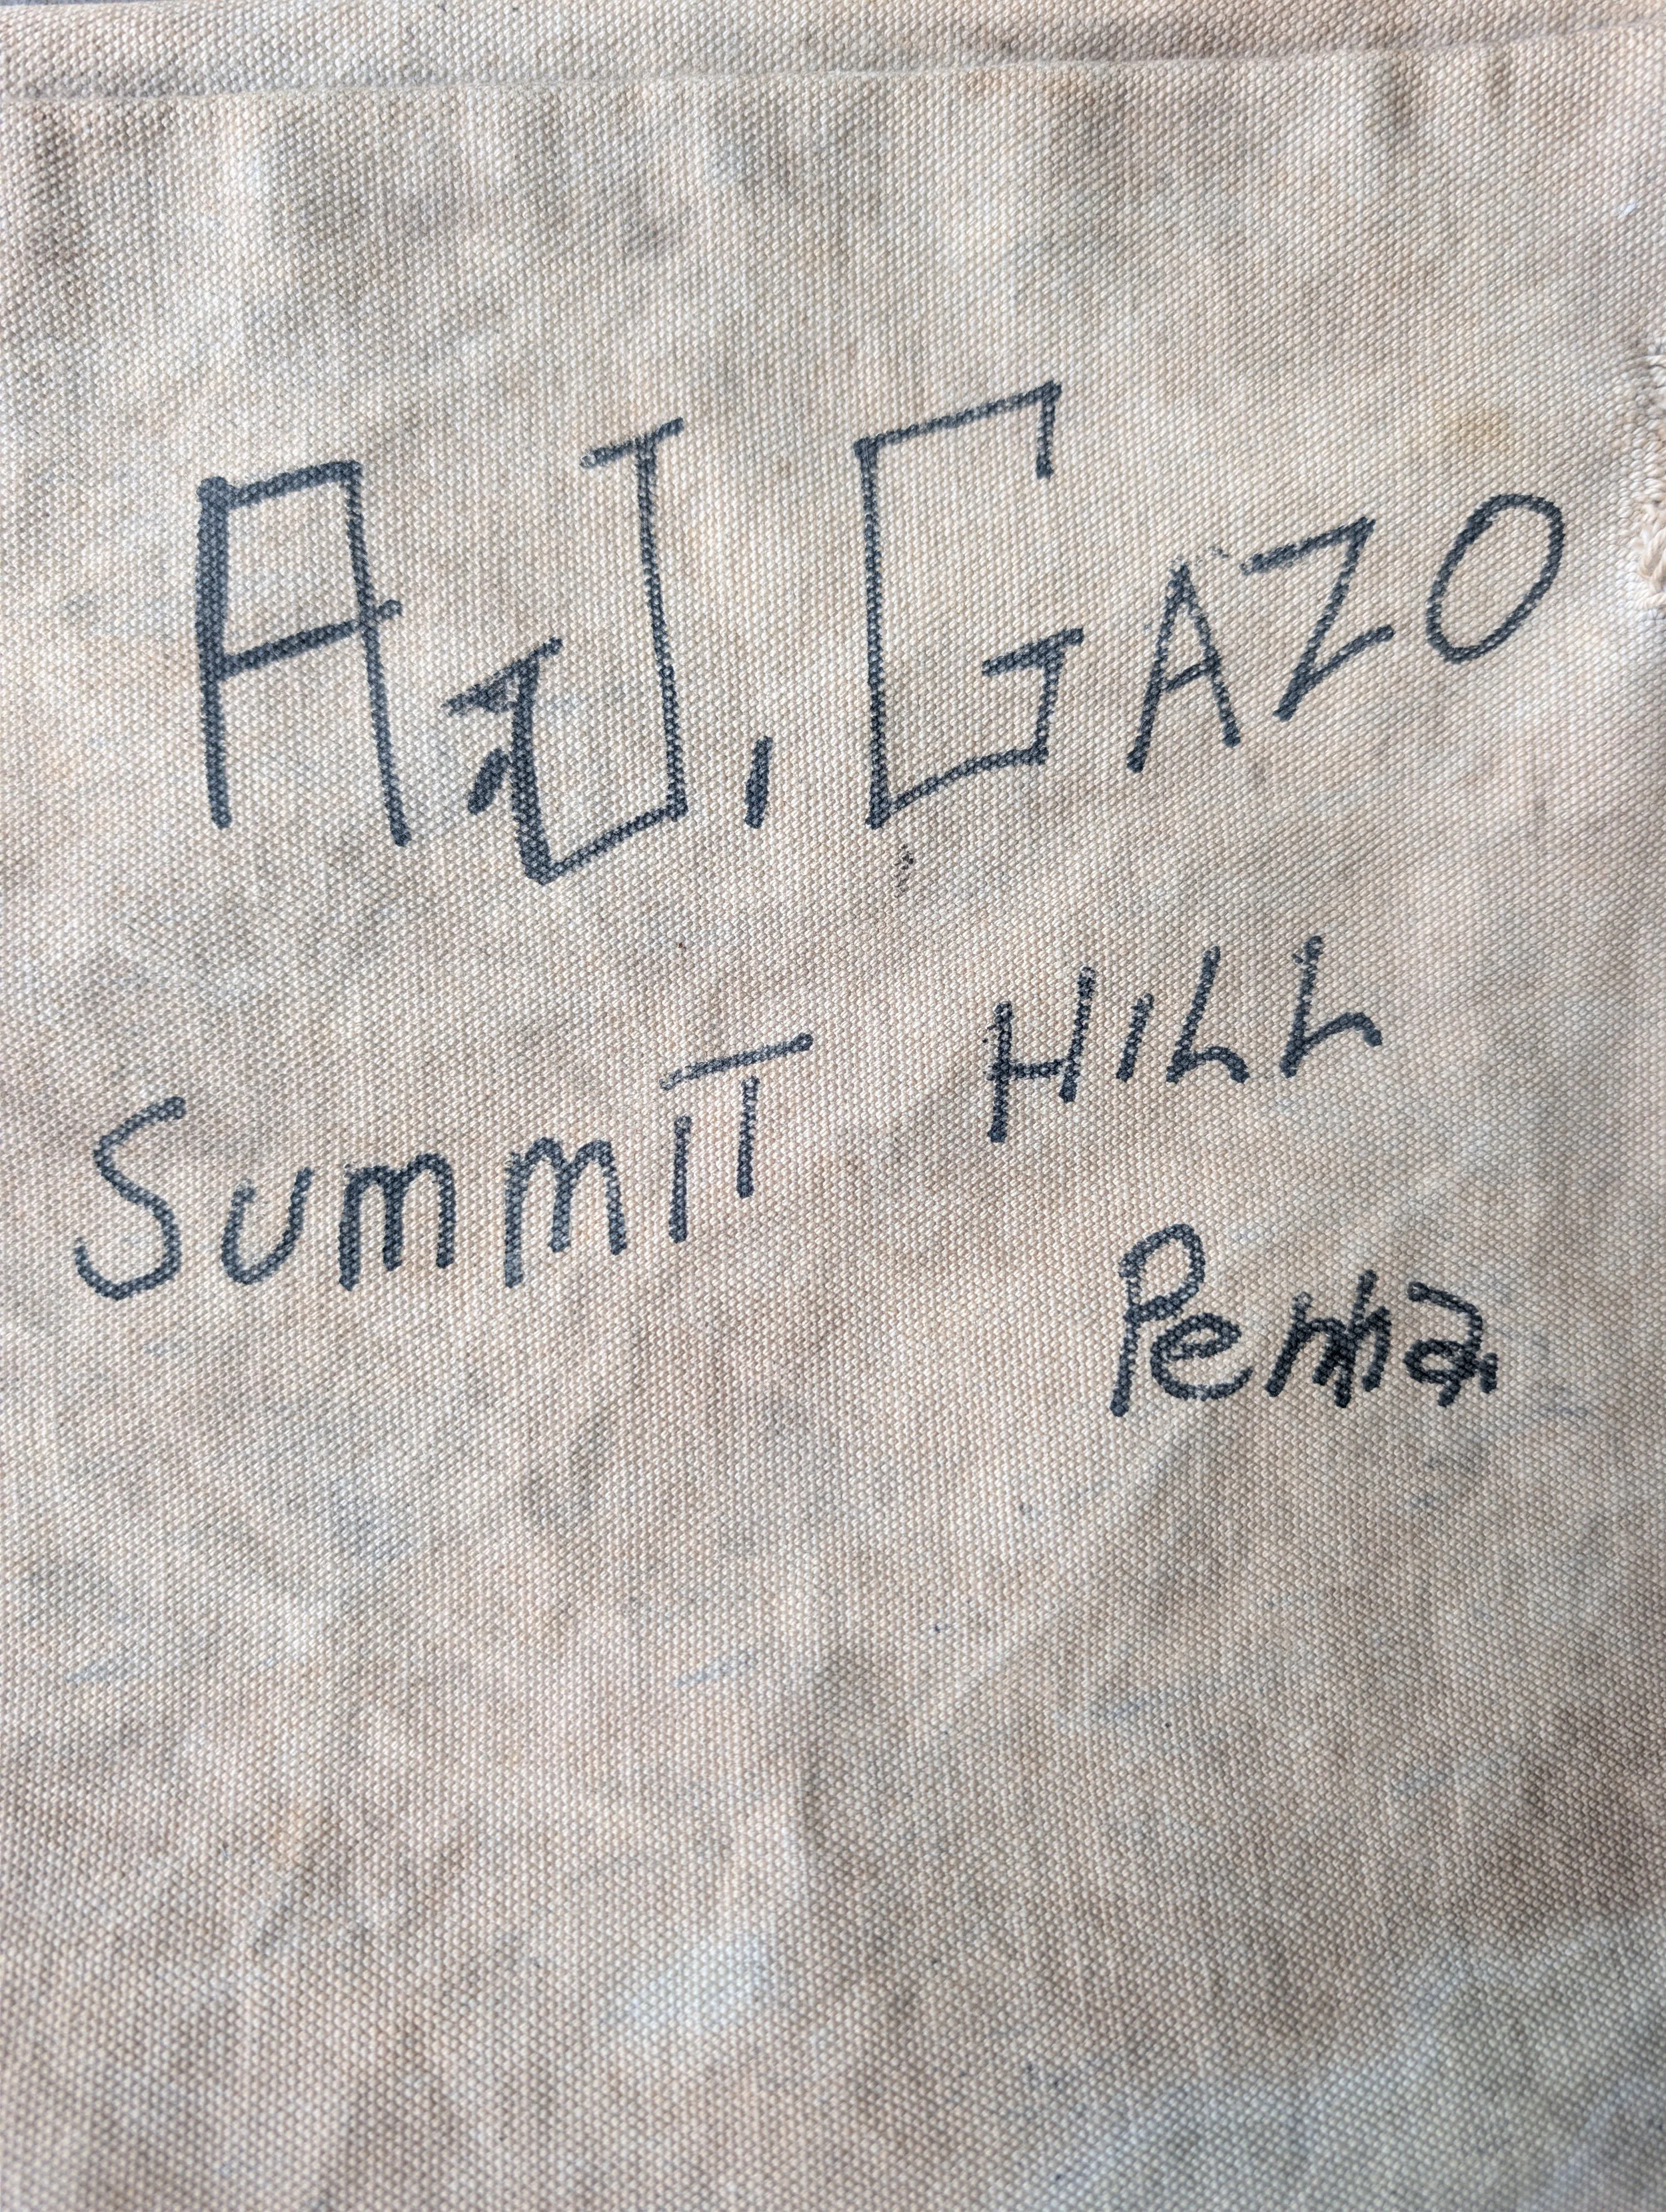 A.J. GAZO
SUMMIT HILL
Penna.